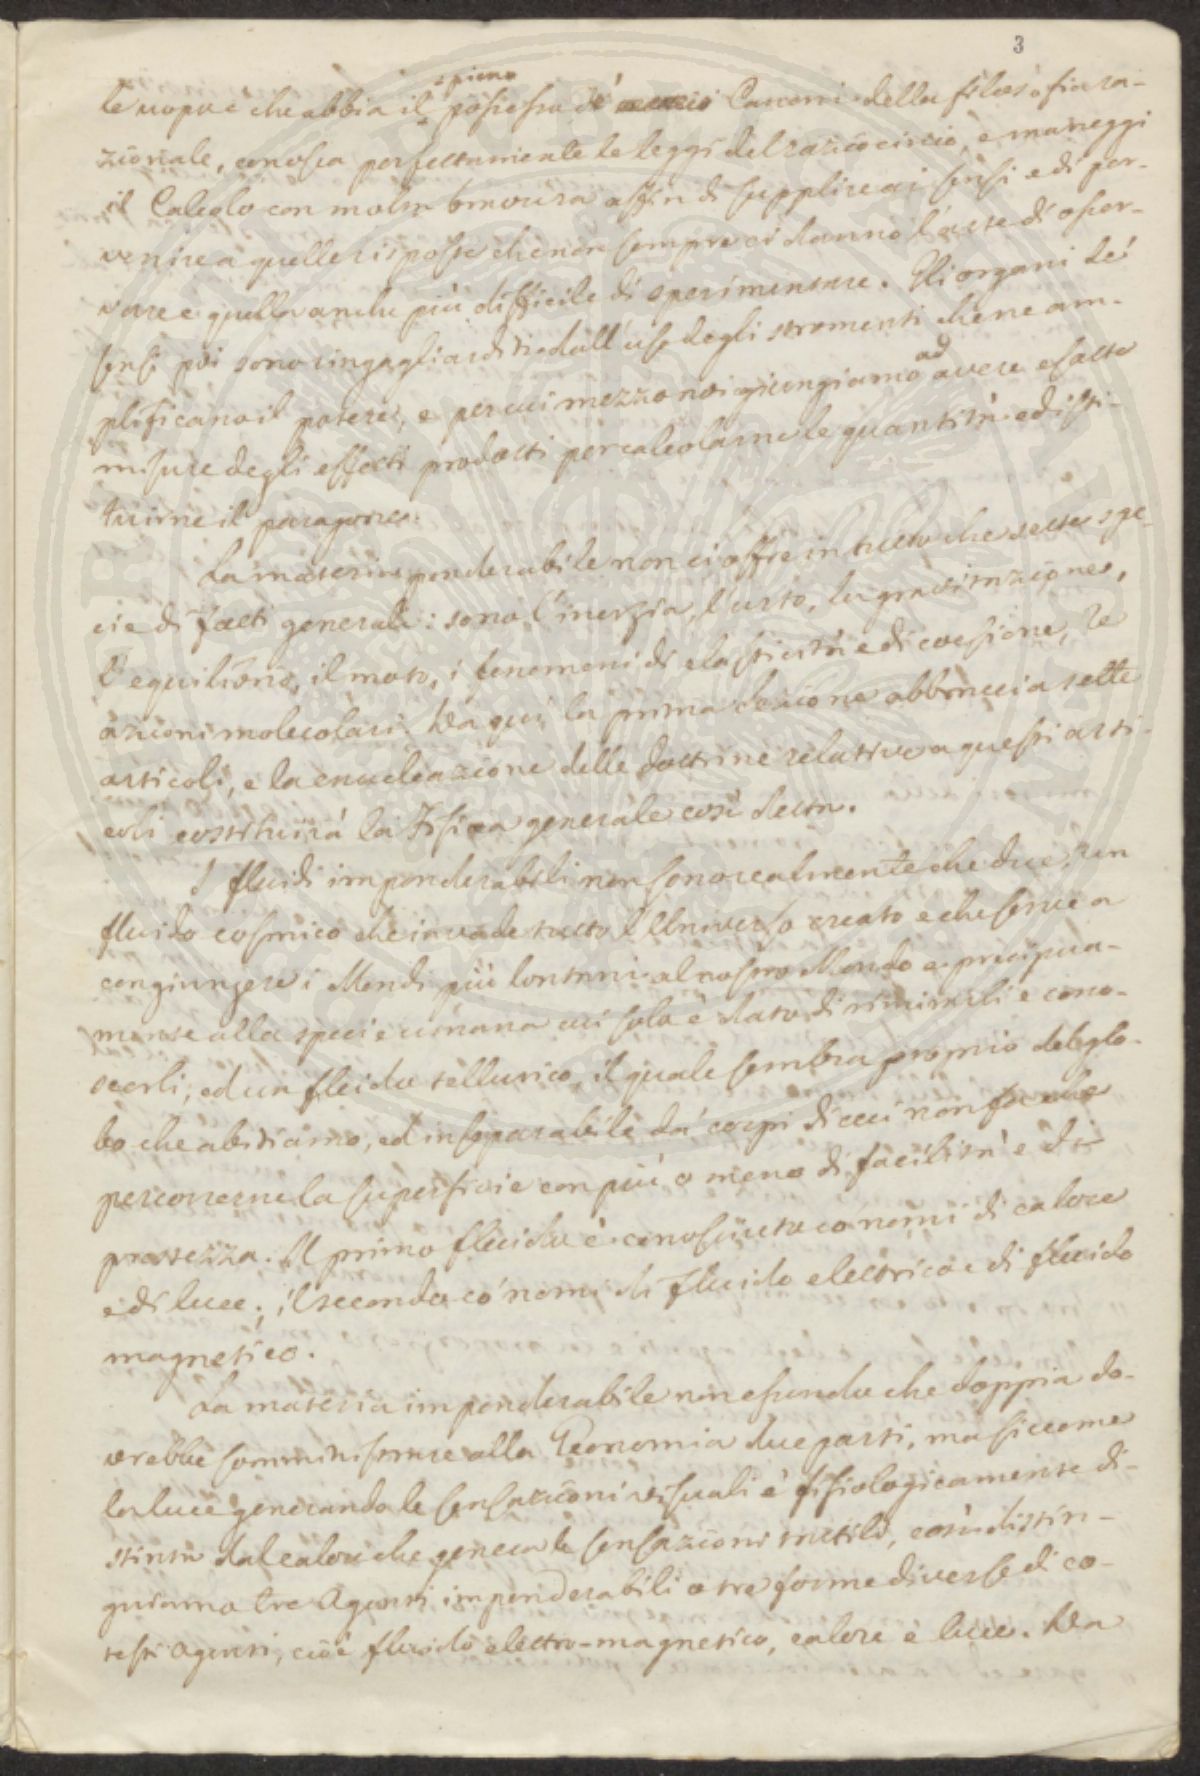 3
pieno
le uopo è che abbia il possesso de' Canoni della filosofia ra-
zionale, conosca perfettamente le leggi del raziocinio, e maneggi
il Calcolo con molta bravura affin di supplire ai sensi e di per-
venire a quelle risposte che non sempre ci danno l'arte di osser-
vare e quella anche più difficile di sperimentare. Gli organi de'
sensi poi sono ringagliarditi dall'uso degli stromenti che ne am-
plificano il potere, e per cui mezzo noi giungiamo ad avere esatte
misure degli effetti prodotti per calcolarne le quantità ed isti-
tuirne il paragone.
La materia ponderabile non ci offre in tutto che sette spe-
cie di fatti generali: sono l'inerzia, l'urto, la gravitazione,
l'equilibrio, il moto, i fenomeni di elasticità e di coesione, le
azioni molecolari. Da qui la prima sezione abbraccia sette
articoli, e la enucleazione delle dottrine relative a questi arti-
coli costituirà la Fisica generale così detta.
I fluidi imponderabili non sono realmente che due: un
fluido cosmico che invade tutto l'Universo creato e che serve a
congiungere i Mondi più lontani al nostro Mondo e precipua-
mente alla specie umana cui solo è dato di rimirarli e cono-
scerli; ed un fluido tellurico, il quale sembra proprio del glo-
bo che abitiamo, ed inseparabile da' corpi di cui non fa che
percorrerne la superficie con più o meno di facilità e di
prestezza. Il primo fluido è conosciuto co' nomi di calore
e di luce; il secondo co' nomi di fluido elettrico e di fluido
magnetico.
La materia imponderabile non essendo che doppia do-
vrebbe somministrare alla Economia due parti, ma siccome
la luce generando le sensazioni visuali è fisiologicamente di-
stinta dal calore che genera le sensazioni tattili, così distin-
guiamo tre Agenti imponderabili o tre forme diverse di co-
testi agenti, cioè fluido elettro-magnetico, calore e luce. Da